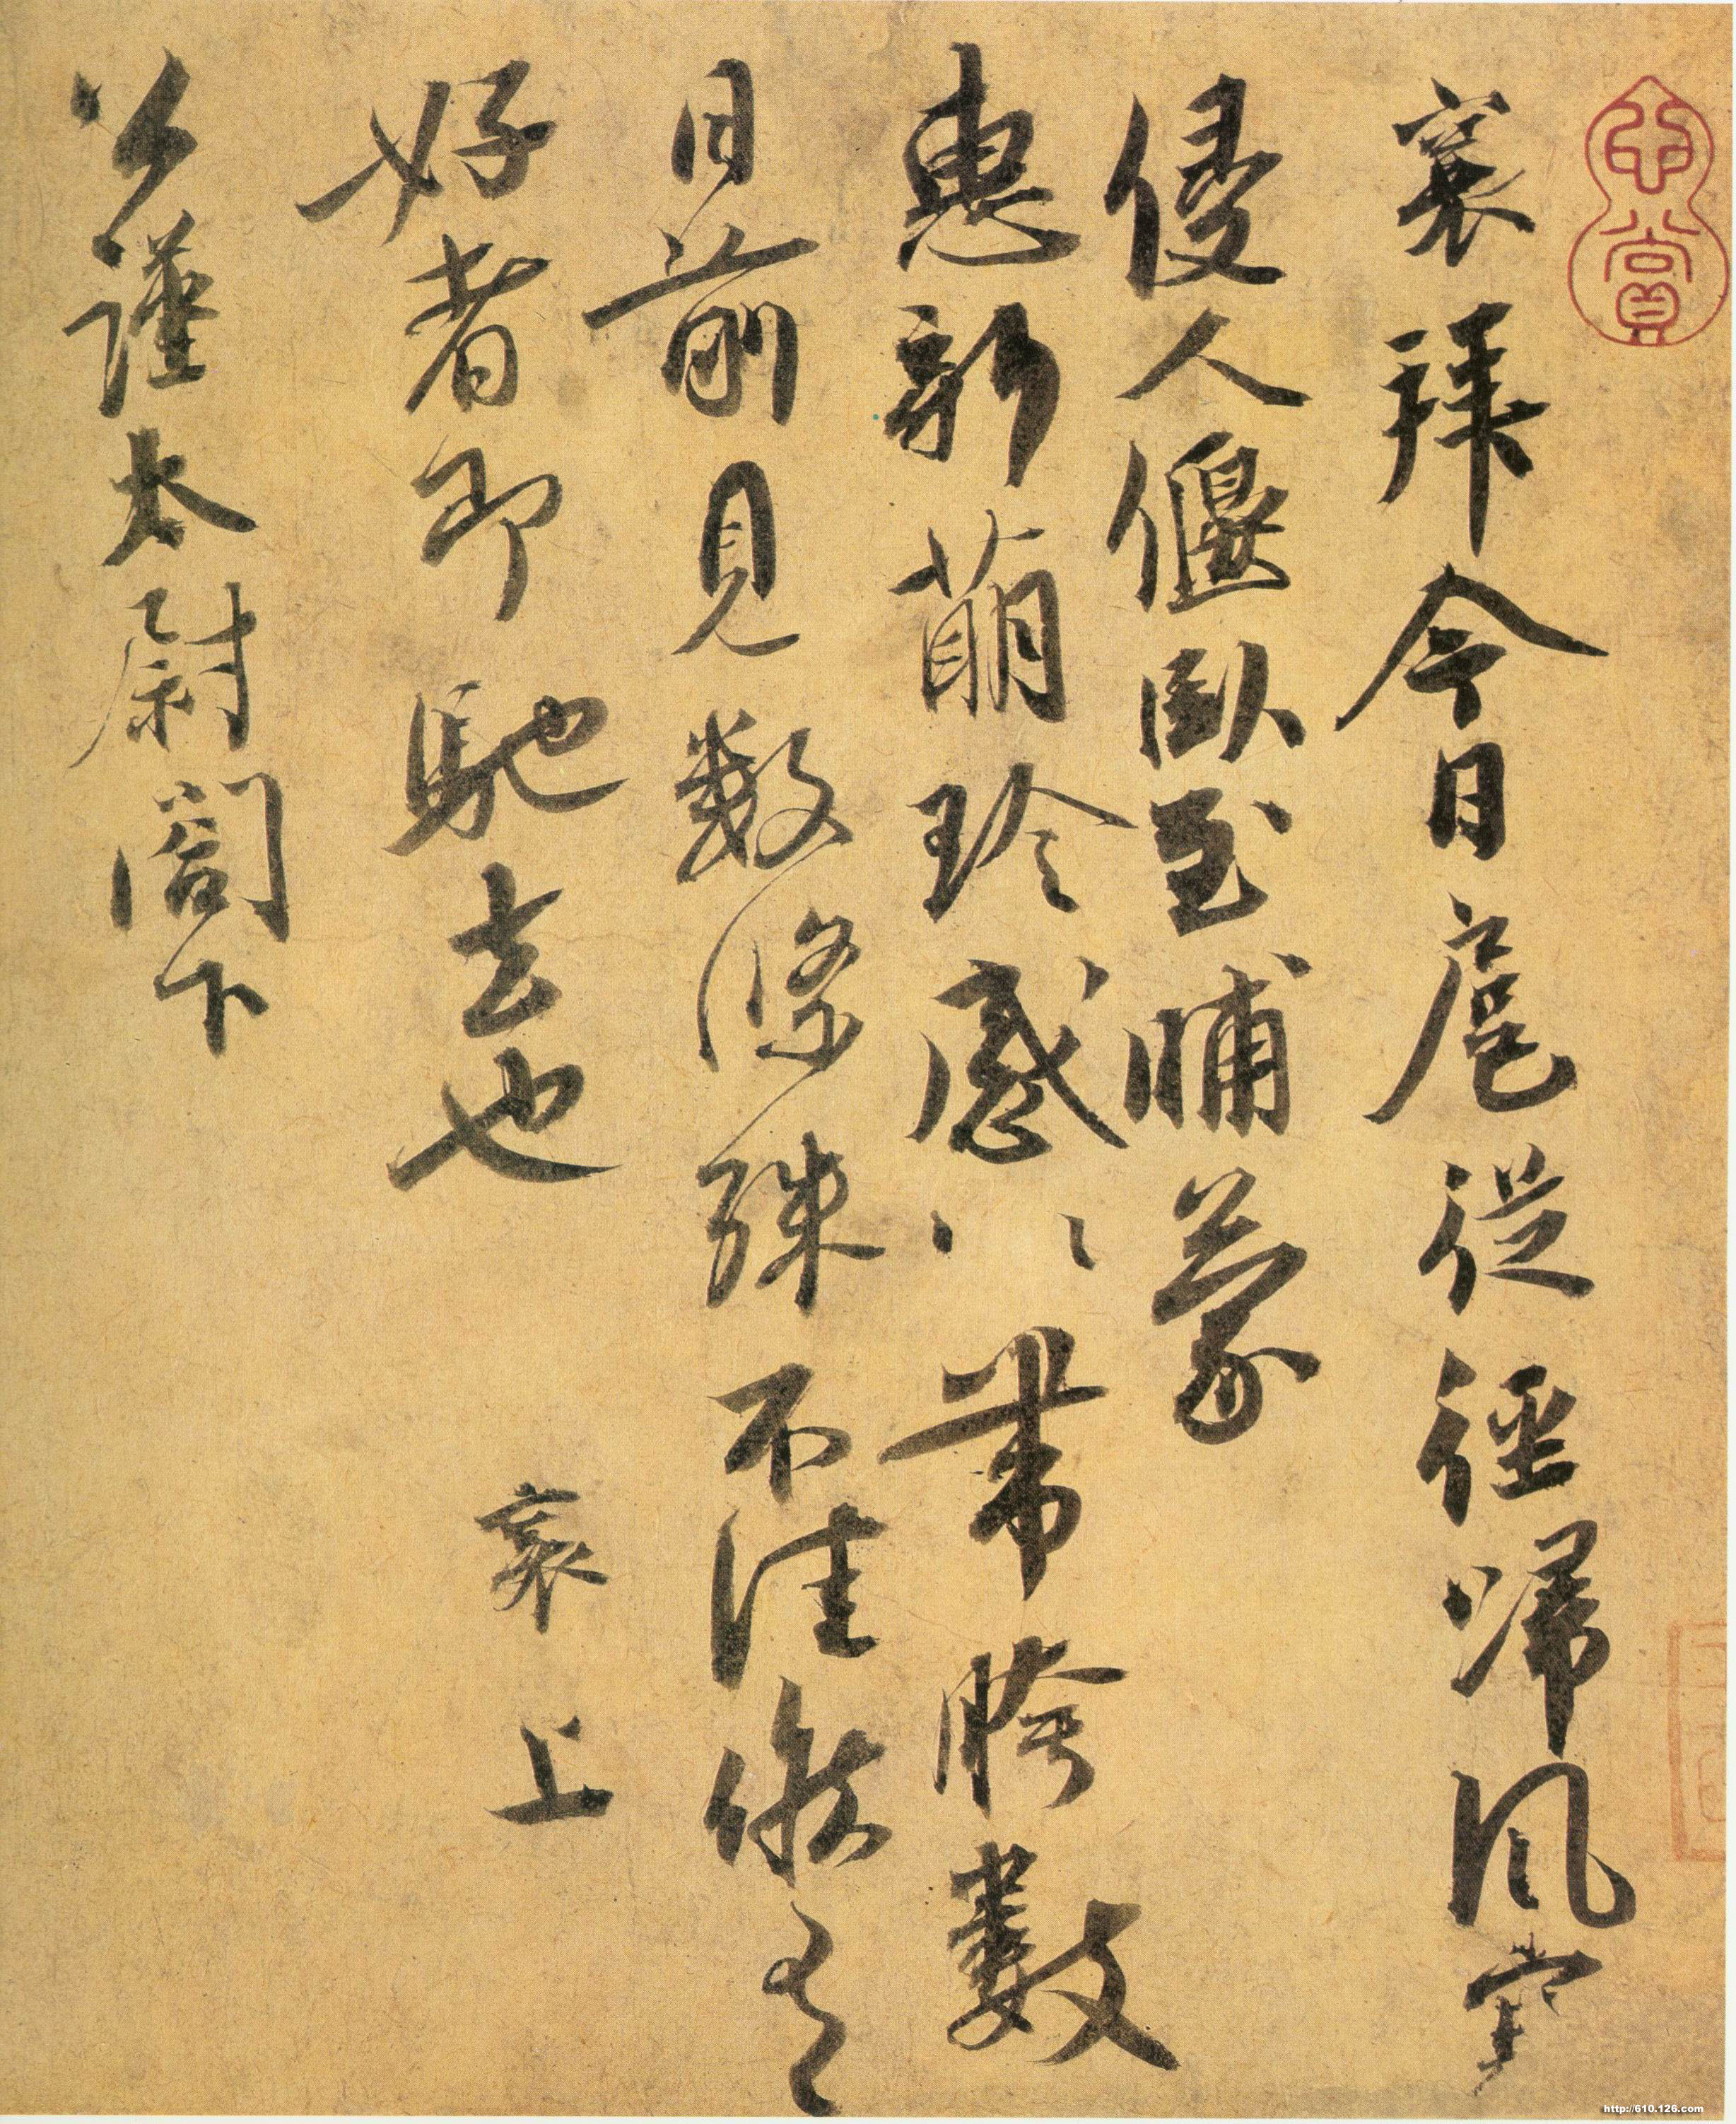 襄拜今日扈從徑歸風寒
侵人偃臥至晡蒙
惠新萌珍感〻帶胯數
日前見數條殊不佳候有
好者即馳去也 襄上
公謹太尉閤下
http://610.126.com